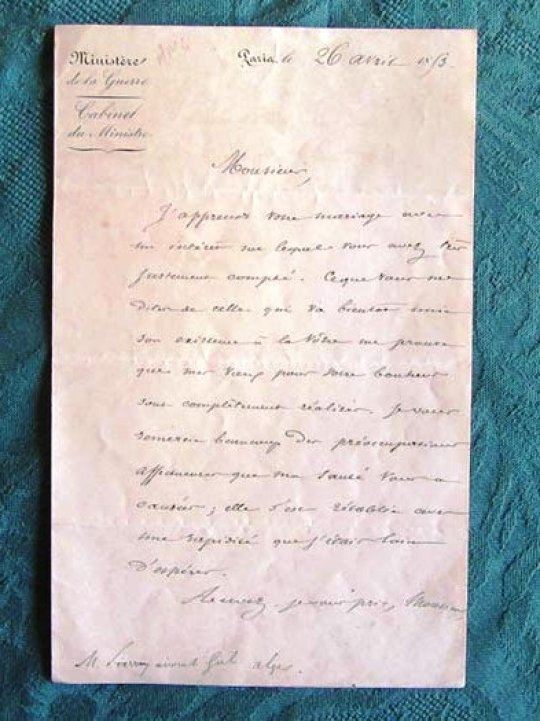 Ministère
de la Guerre
Cabinet
du Ministre
Paris, le 26 avril 1853.
Monsieur,
J'apprends votre mariage avec
un intérêt sur lequel vous avez très
justement compté. Ce que vous me
dites de celle qui va bientôt unir
son existence à la vôtre me prouve
que mes vœux pour votre bonheur
sont complètement réalisés. Je vous
remercie beaucoup des préoccupations
affectueuses que ma santé vous a
causées ; elle s'est rétablie avec
une rapidité que j'étais loin
d'espérer.
Recevez, je vous prie, Monsieur
M. avocat Gal alger